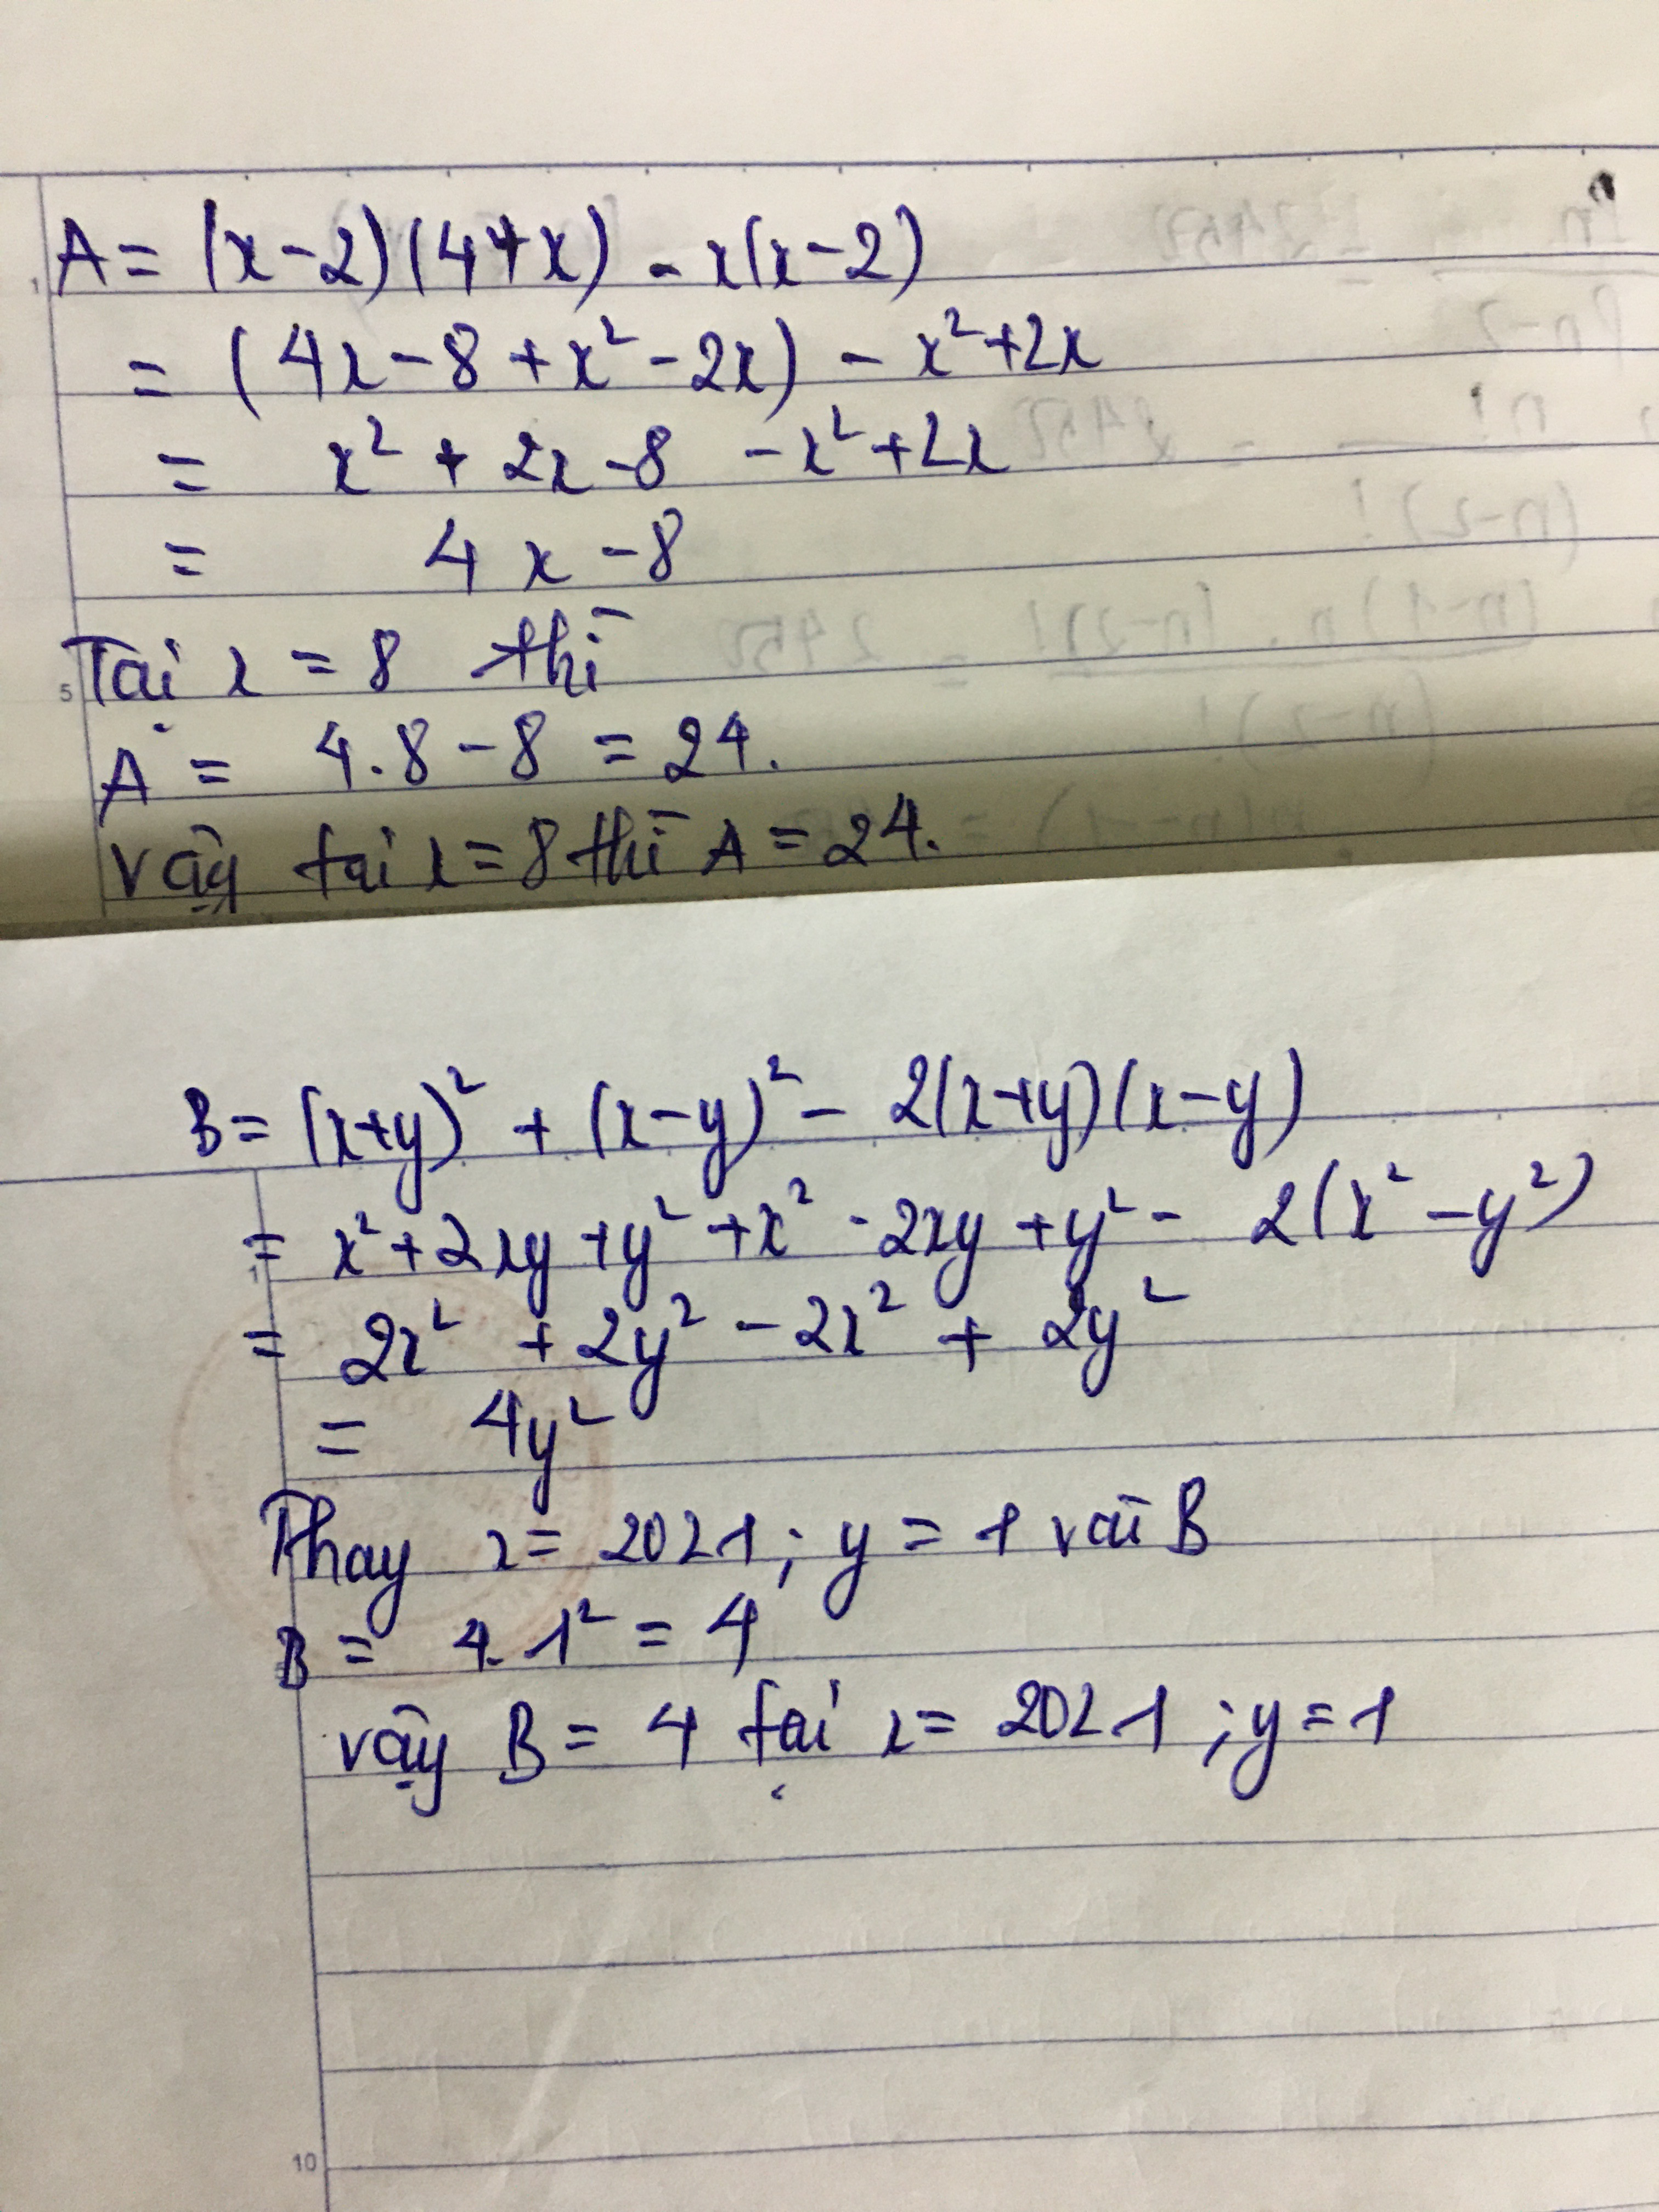 A = (x-2)(4+x) - x(x-2)
= (4x-8+x²-2x) - x²+2x
= x² + 2x-8 -x²+2x
= 4x-8
Tại x = 8 thì
A = 4.8-8 = 24.
vậy tại x=8 thì A = 24.
B = (x+y)² + (x-y)² - 2(x+y)(x-y)
= x²+2xy+y²+x²-2xy+y²- 2(x²-y²)
= 2x² + 2y² - 2x² + 2y²
= 4y²
Thay x = 2021 ; y = 1 vào B
B = 4.1² = 4
vậy B = 4 tại x = 2021 ; y = 1
1
5
1
10